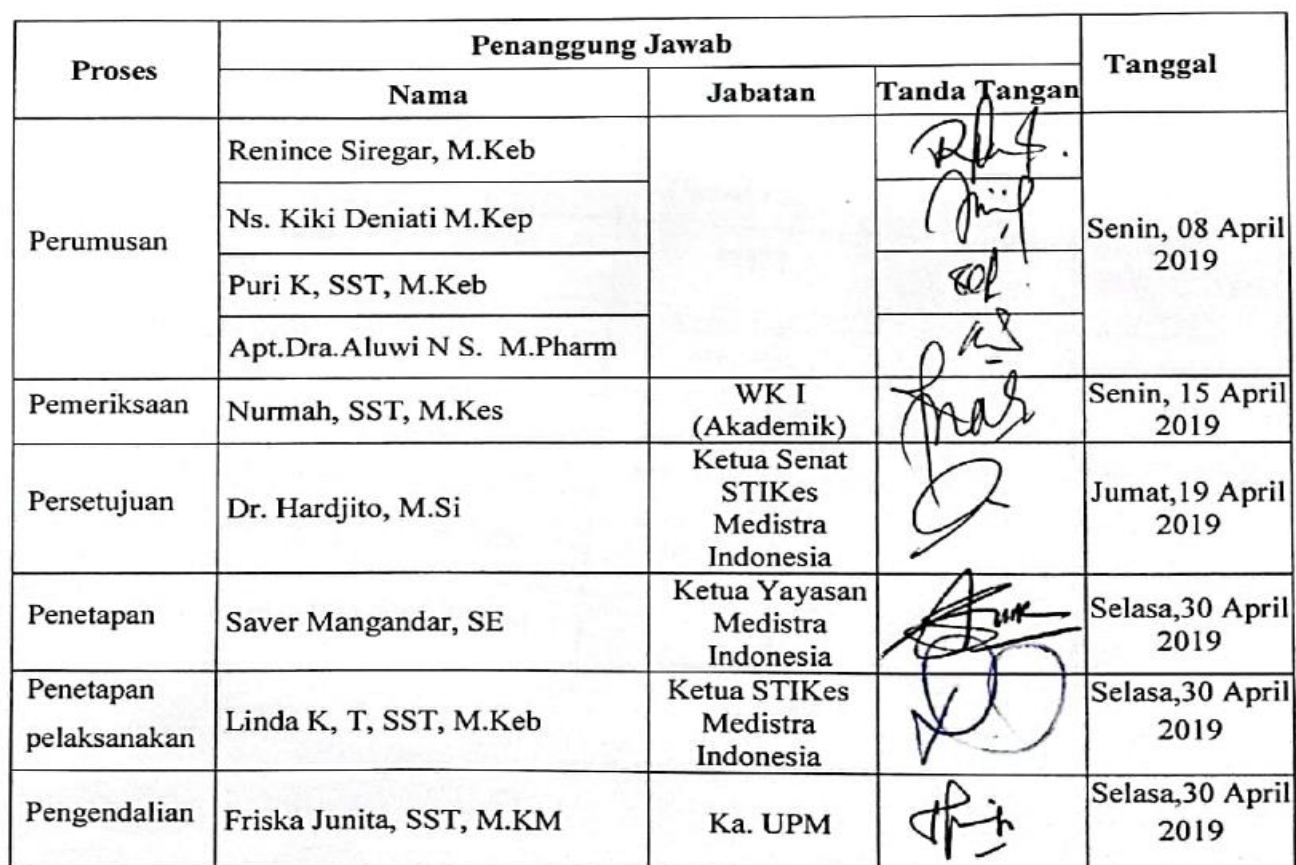 Proses
Penanggung Jawab
Tanggal
Nama
Jabatan
Tanda Tangan
Perumusan
Renince Siregar, M.Keb
Ns. Kiki Deniati M.Kep
Puri K, SST, M.Keb
Apt.Dra.Aluwi N S. M.Pharm
Senin, 08 April
2019
Pemeriksaan
Nurmah, SST, M.Kes
WK I
(Akademik)
Senin, 15 April
2019
Persetujuan
Dr. Hardjito, M.Si
Ketua Senat
STIKes
Medistra
Indonesia
Jumat,19 April
2019
Penetapan
Saver Mangandar, SE
Ketua Yayasan
Medistra
Indonesia
Selasa,30 April
2019
Penetapan
pelaksanakan
Linda K, T, SST, M.Keb
Ketua STIKes
Medistra
Indonesia
Selasa,30 April
2019
Pengendalian
Friska Junita, SST, M.KM
Ka. UPM
Selasa,30 April
2019